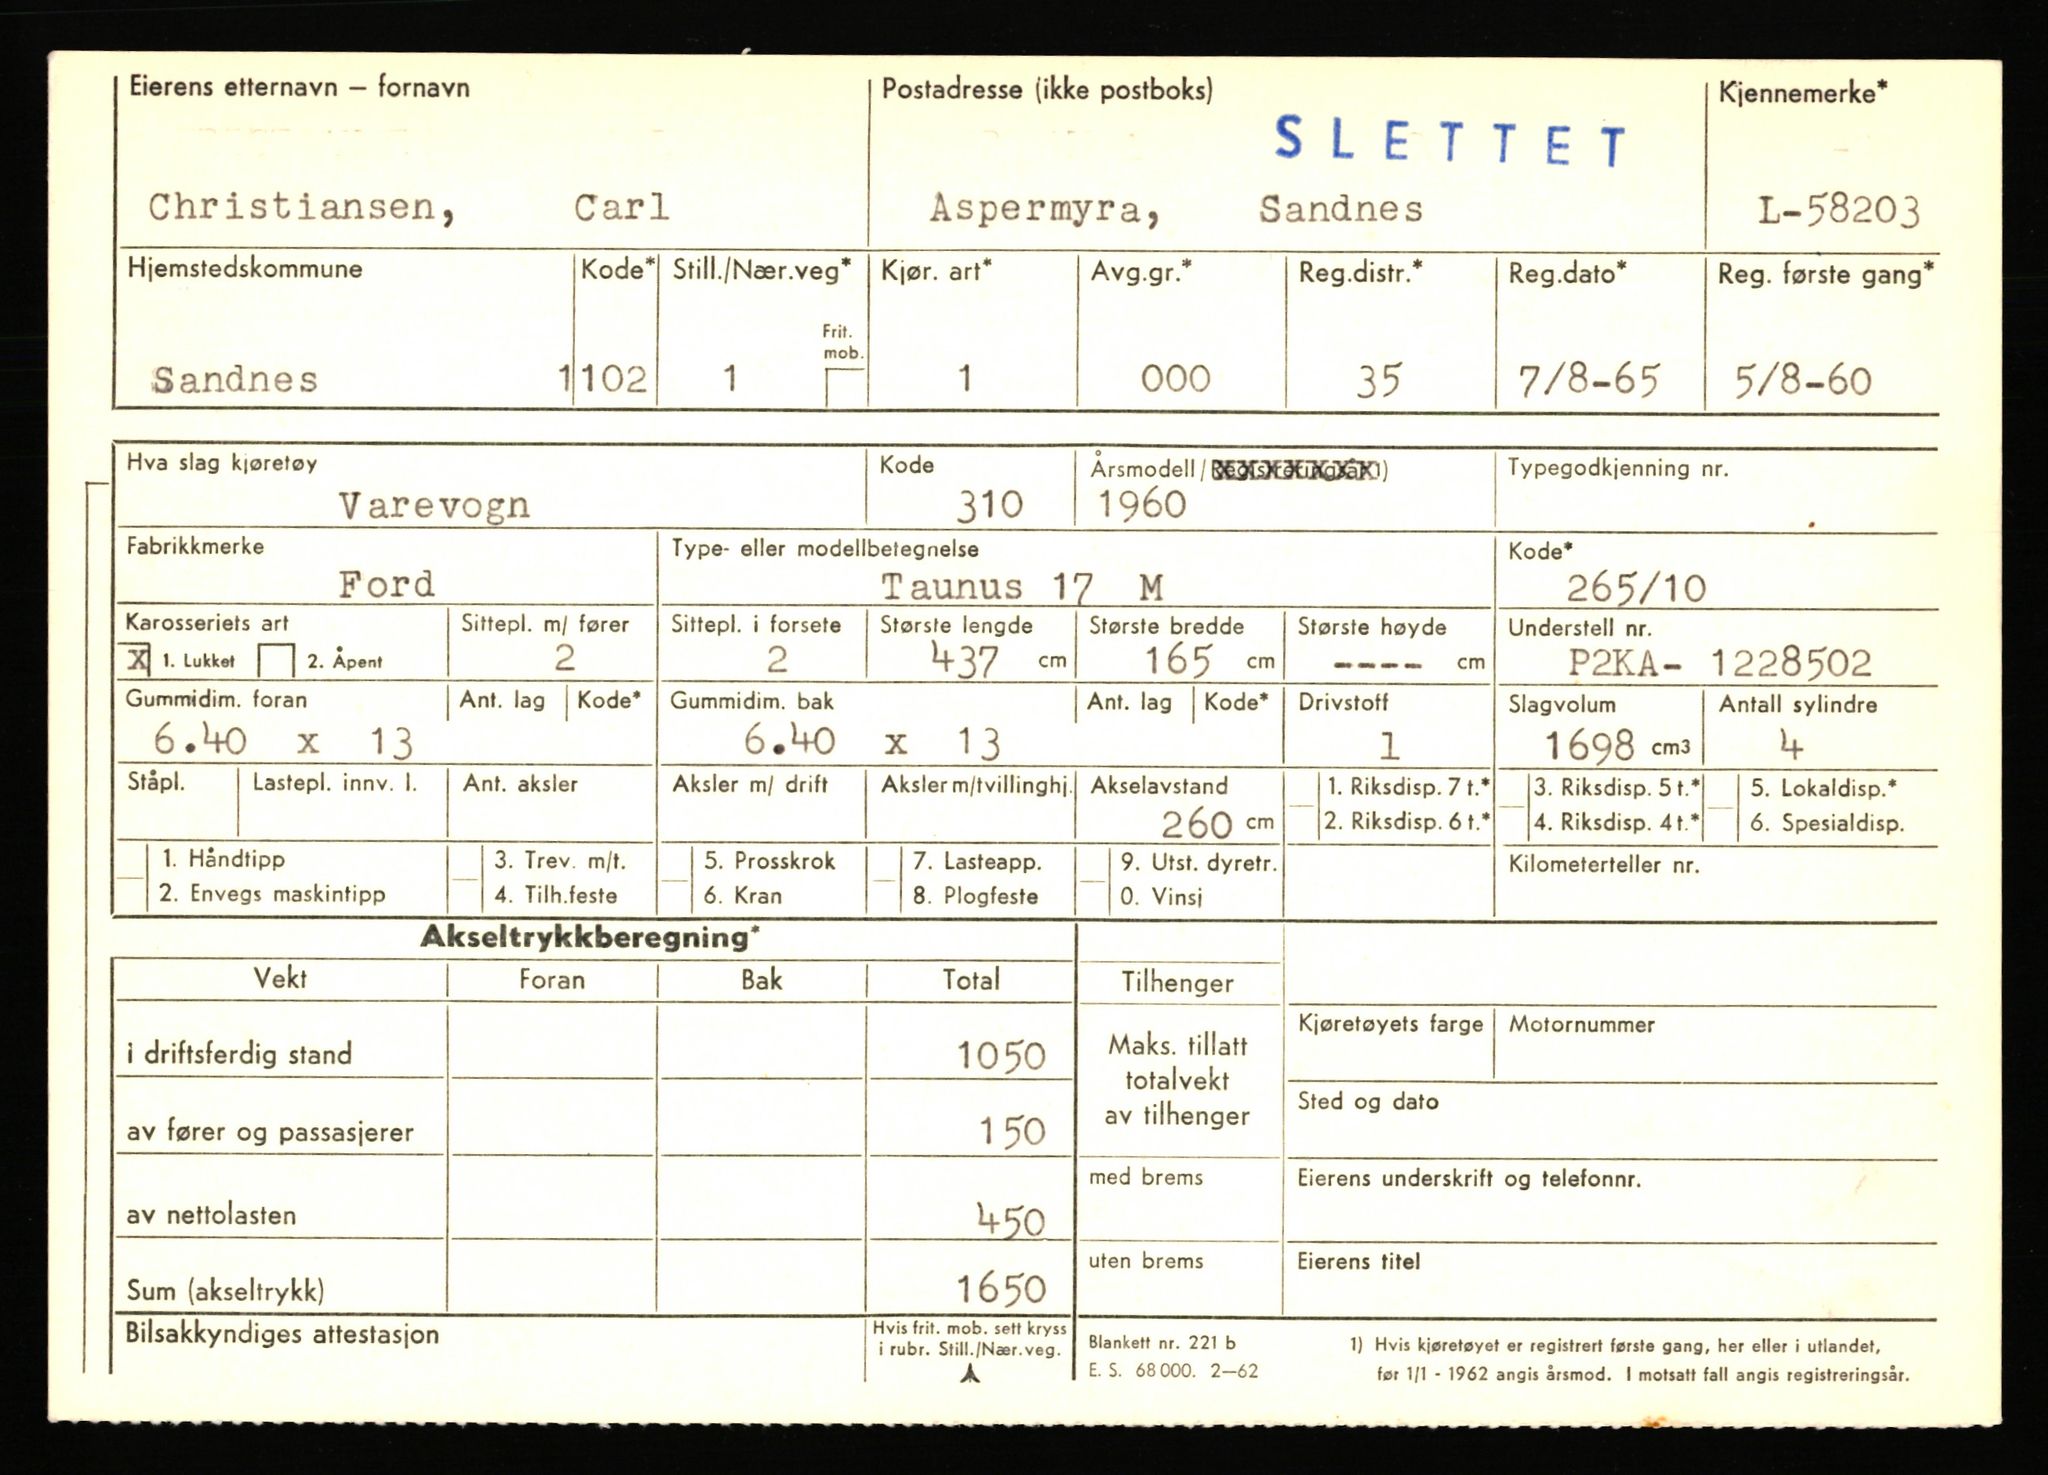 Eierens etternavn – fornavn Postadresse (ikke postboks) Kjennemerke*
SLETTET
Christiansen, Carl Aspermyra, Sandnes L-58203
Hjemstedskommune Kode* Still./Nær.veg* Kjør. art* Avg.gr.* Reg.distr.* Reg.dato* Reg. første gang*
Frit.
mob.
Sandnes 1102 1 1 000 35 7/8-65 5/8-60
Hva slag kjøretøy Kode Årsmodell/Registreringsår1) Typegodkjenning nr.
Varevogn 310 1960
Fabrikkmerke Type- eller modellbetegnelse Kode*
Ford Taunus 17 M 265/10
Karosseriets art Sittepl. m/ fører Sittepl. i forsete Største lengde Største bredde Største høyde Understell nr.
X 1. Lukket 2. Åpent 2 2 437 cm 165 cm ---- cm P2KA- 1228502
Gummidim. foran Ant. lag Kode* Gummidim. bak Ant. lag Kode* Drivstoff Slagvolum Antall sylindre
6.40 x 13 6.40 x 13 1 1698 cm3 4
Ståpl. Lastepl. innv. l. Ant. aksler Aksler m/ drift Aksler m/tvillinghj. Akselavstand 1. Riksdisp. 7 t.* 3. Riksdisp. 5 t.* 5. Lokaldisp.*
260 cm 2. Riksdisp. 6 t.* 4. Riksdisp. 4 t.* 6. Spesialdisp.
1. Håndtipp 3. Trev. m/t. 5. Prosskrok 7. Lasteapp. 9. Utst. dyretr. Kilometerteller nr.
2. Envegs maskintipp 4. Tilh.feste 6. Kran 8. Plogfeste 0. Vinsj
Akseltrykkberegning*
Vekt Foran Bak Total Tilhenger
Kjøretøyets farge Motornummer
i driftsferdig stand 1050 Maks. tillatt
totalvekt
av tilhenger
Sted og dato
av fører og passasjerer 150
med brems Eierens underskrift og telefonnr.
av nettolasten 450
uten brems Eierens titel
Sum (akseltrykk) 1650
Bilsakkyndiges attestasjon Hvis frit. mob. sett kryss
i rubr. Still./Nær.veg.
Blankett nr. 221 b
E. S. 68 000. 2–62
1) Hvis kjøretøyet er registrert første gang, her eller i utlandet,
før 1/1 - 1962 angis årsmod. I motsatt fall angis registreringsår.